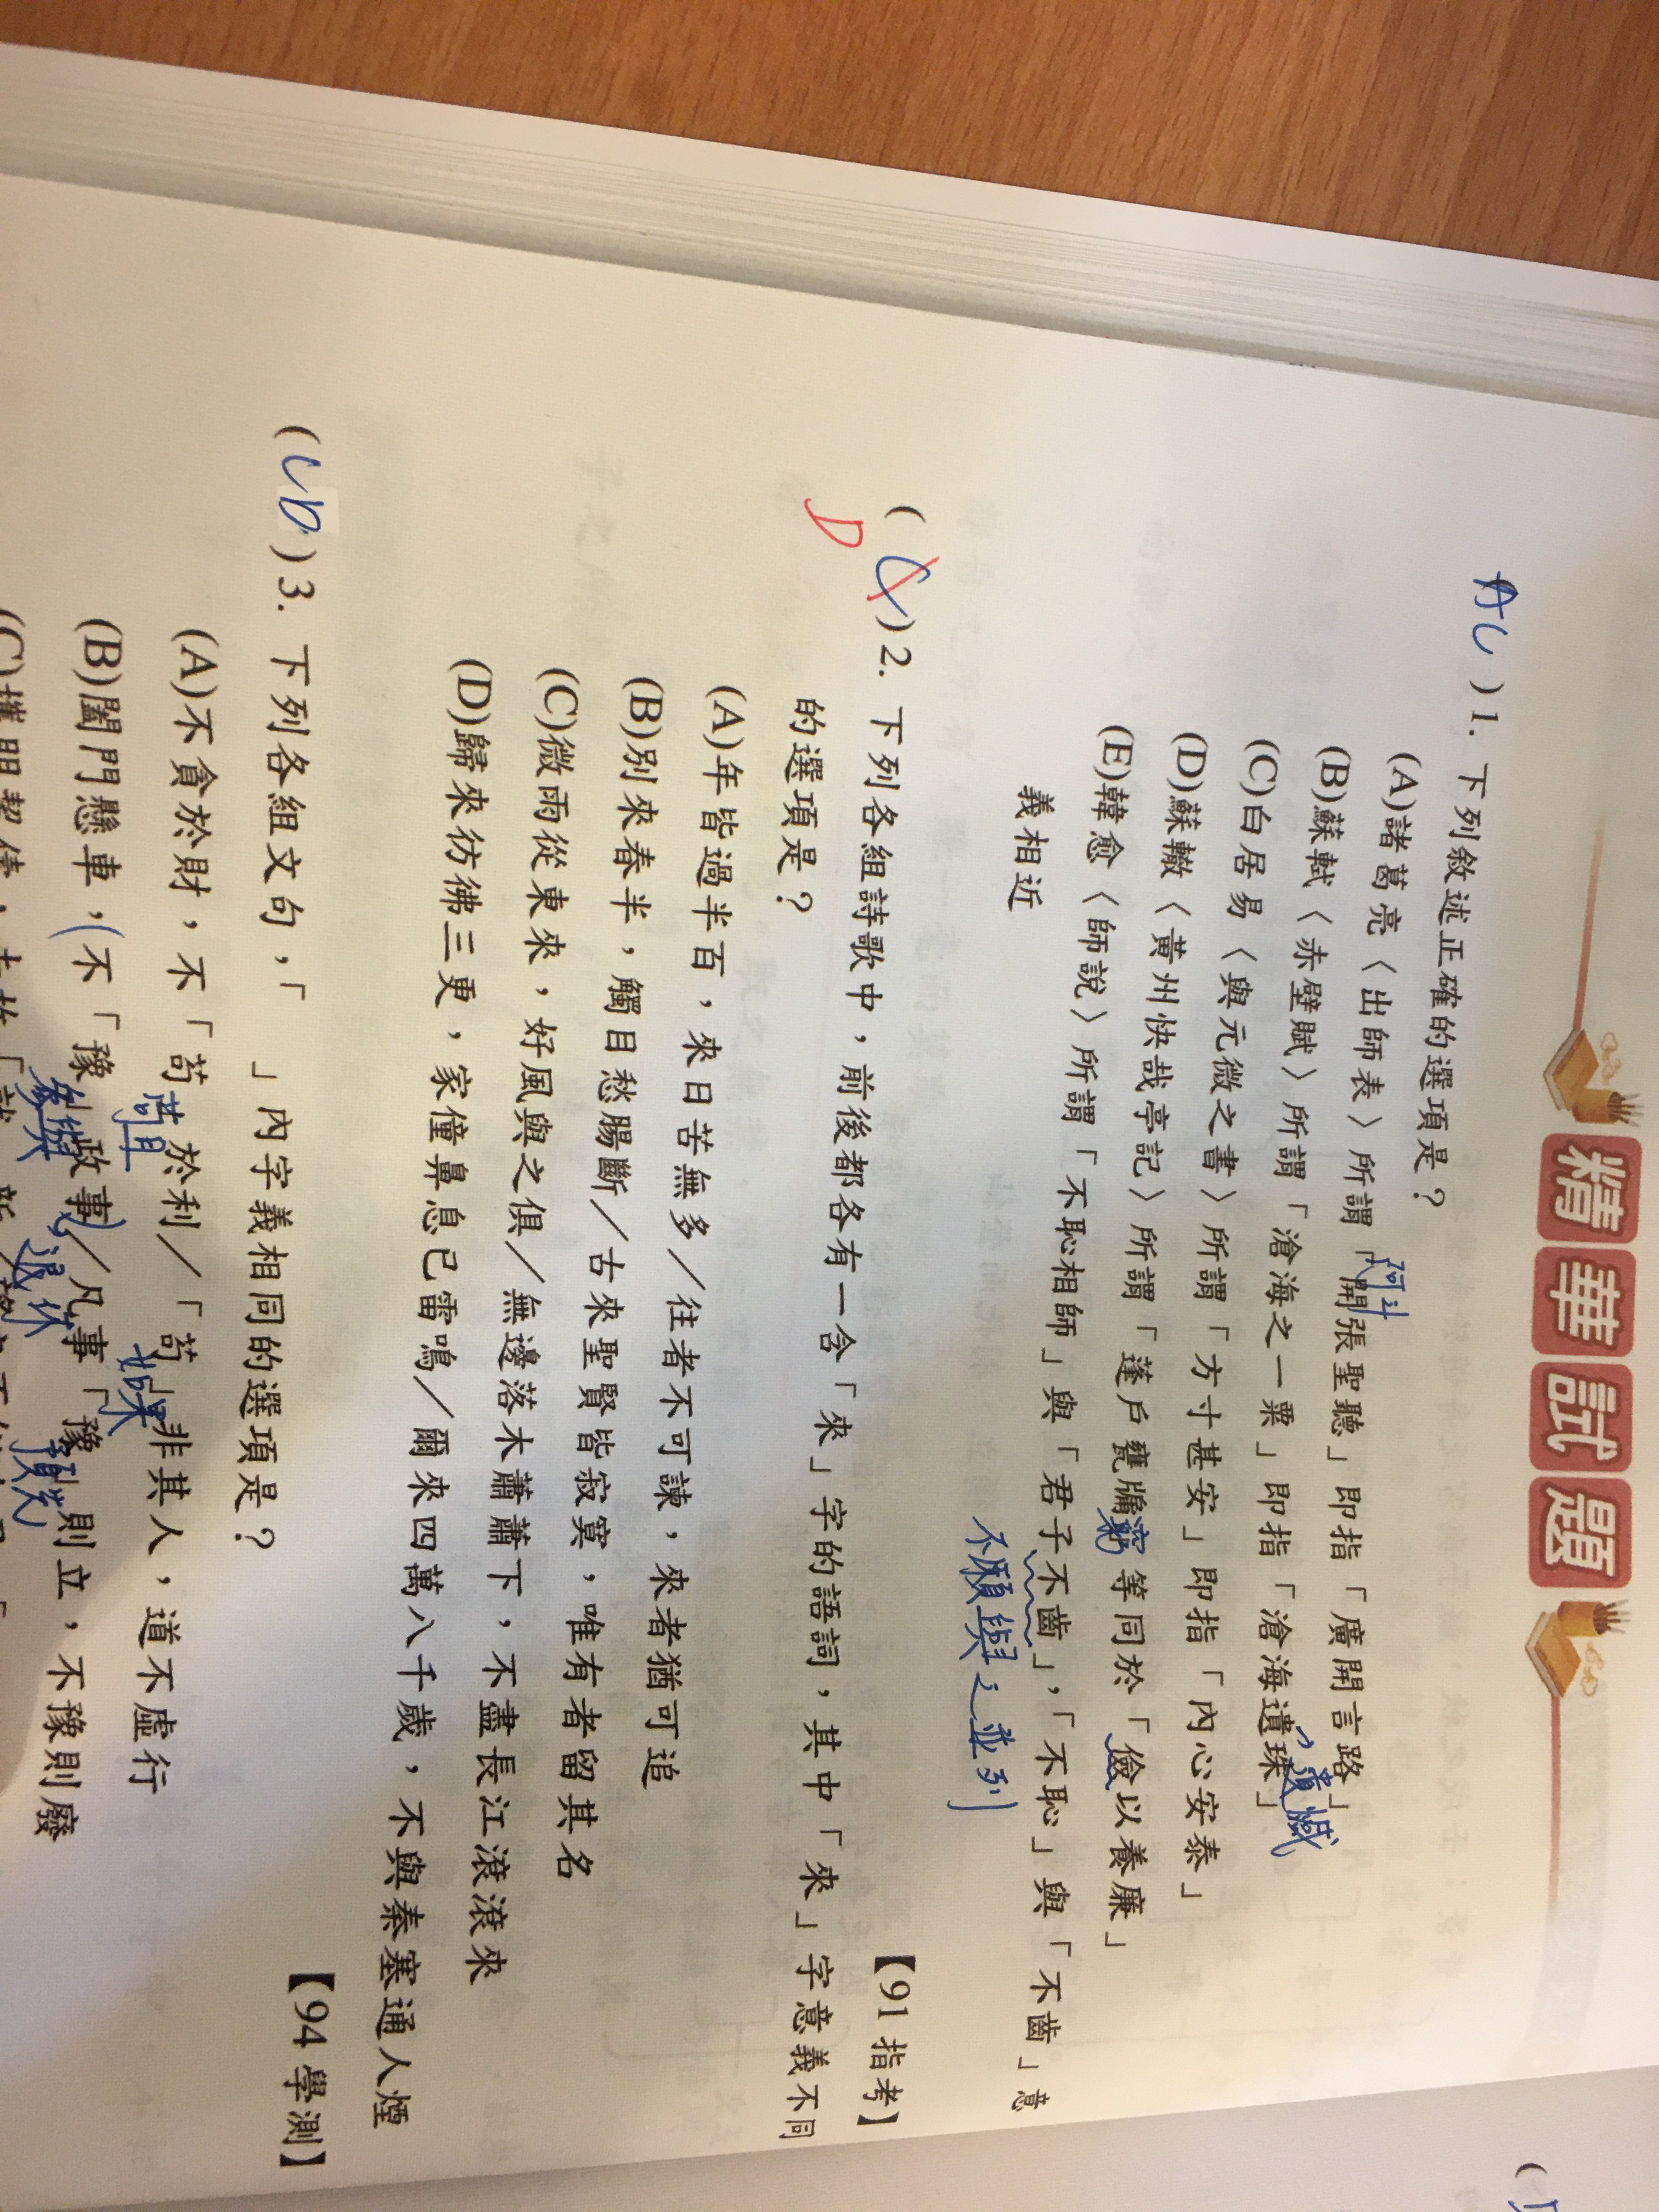 精華試題
(AC)1. 下列敘述正確的選項是？
阿斗
(A)諸葛亮〈出師表〉所謂「開張聖聽」即指「廣開言路」
(B)蘇軾〈赤壁賦〉所謂「滄海之一粟」即指「滄海遺珠」
遺憾
(C)白居易〈與元微之書〉所謂「方寸甚安」即指「內心安泰」
(D)蘇轍〈黃州快哉亭記〉所謂「蓬戶甕牖」等同於「儉以養廉」
窮
(E)韓愈〈師說〉所謂「不恥相師」與「君子不齒」，「不恥」與「不齒」意
義相近
不願與之並列
【91 指考】
(C)2. 下列各組詩歌中，前後都各有一含「來」字的語詞，其中「來」字意義不同
D
的選項是？
(A)年皆過半百，來日苦無多／往者不可諫，來者猶可追
(B)別來春半，觸目愁腸斷／古來聖賢皆寂寞，唯有者留其名
(C)微雨從東來，好風與之俱／無邊落木蕭蕭下，不盡長江滾滾來
(D)歸來彷彿三更，家僮鼻息已雷鳴／爾來四萬八千歲，不與秦塞通人煙
【94 學測】
(CD)3. 下列各組文句，「　」內字義相同的選項是？
(A)不貪於財，不「苟」於利／「苟」非其人，道不虛行
苟且
如果
(B)闔門懸車，不「豫」政事／凡事「豫」則立，不豫則廢
參與
退休
預先